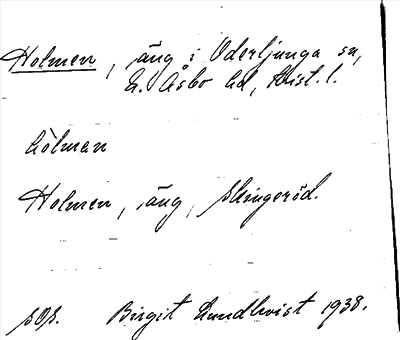 Holmen, äng i Oderljunga sn,
N. Åsbo hd, Krist. l.
hòlman
Holmen, äng, Skingeröd.
sOp. Birgit Lundkvist 1938.